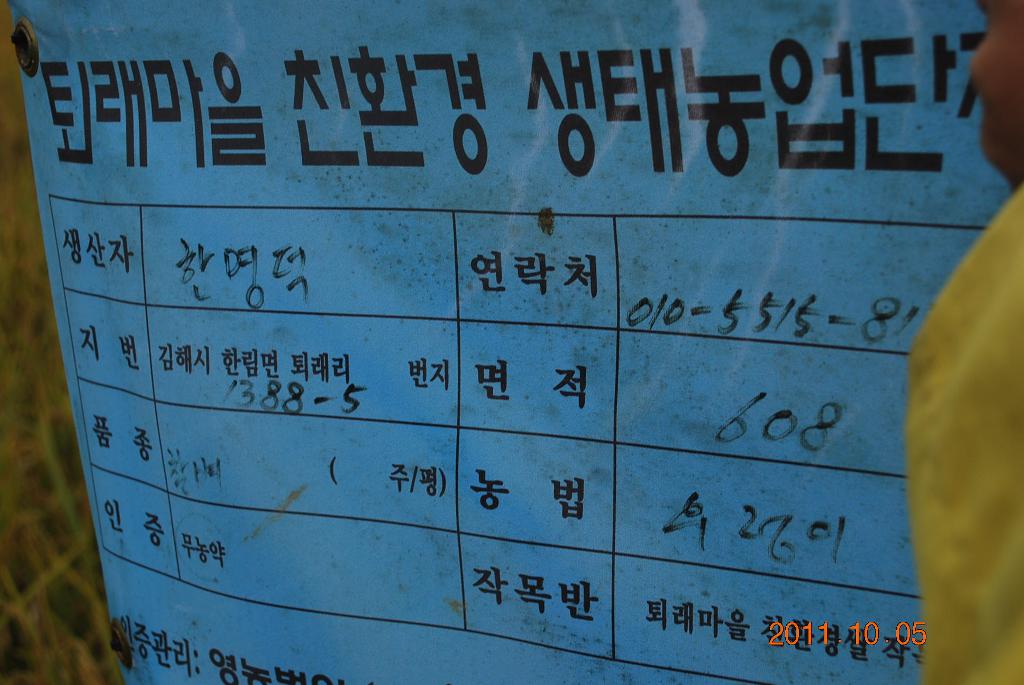 퇴래마을 친환경 생태농업단
생산자 한명덕 연락처 010-5515-81
지 번 김해시 한림면 퇴래리 번지 면 적 608
1388-5
품 종 ( 주/평) 농 법 우렁이
인 증 무농약 작목반 퇴래마을
인증관리: 영농법인
2011.10.05